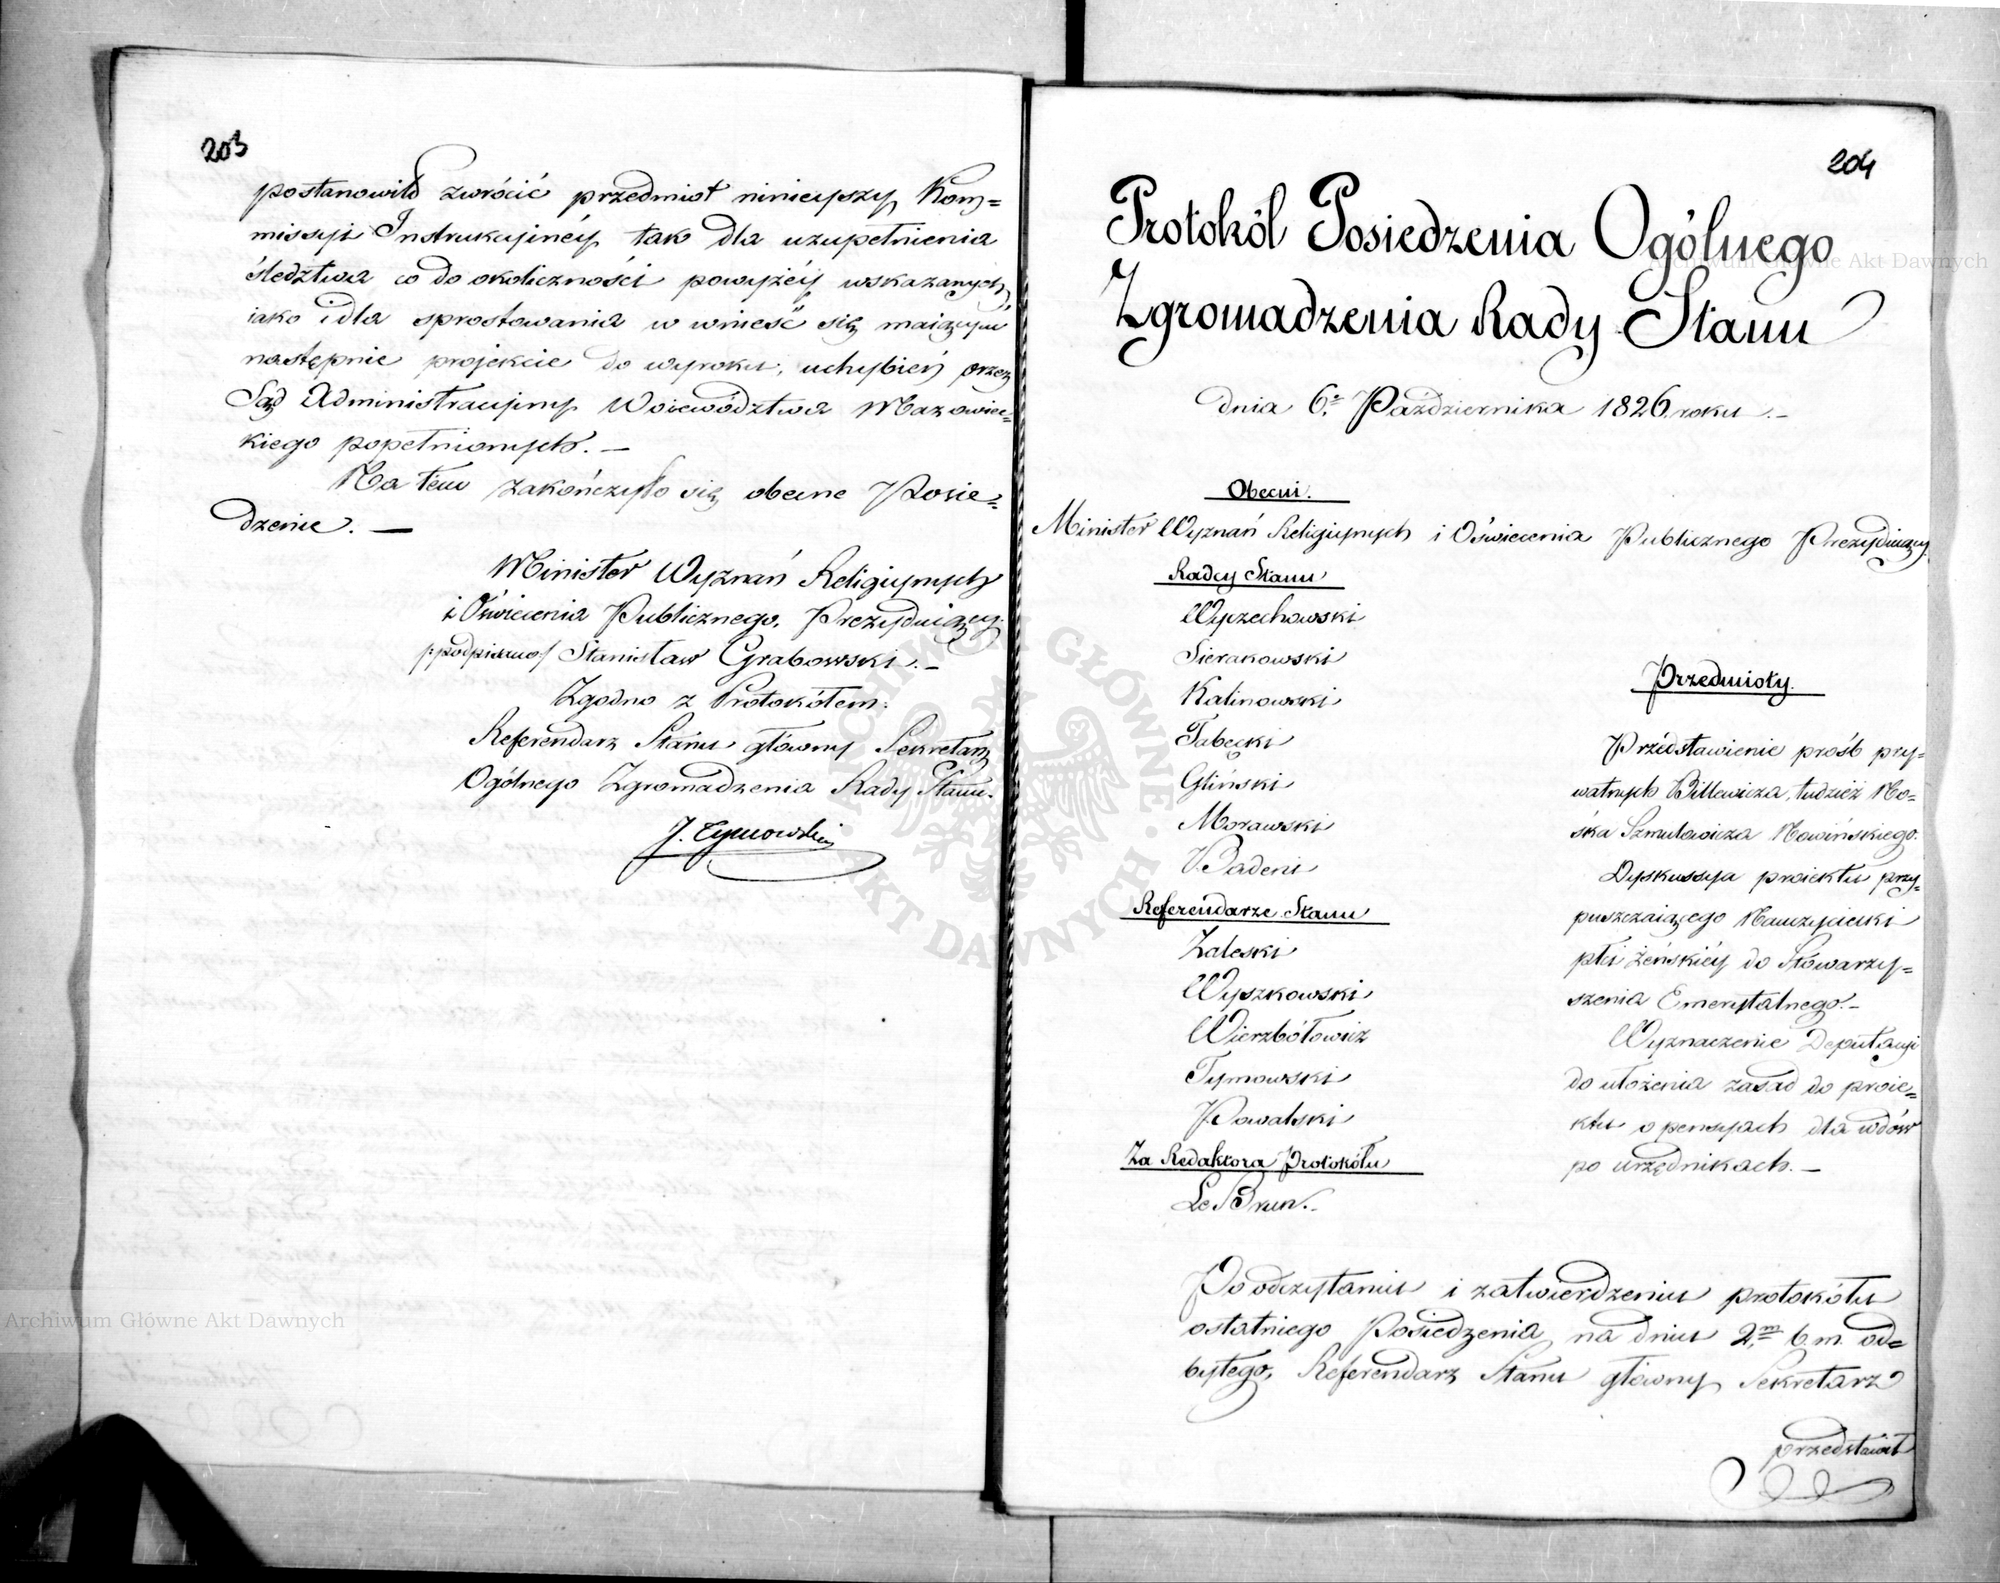 203
postanowiło zwrócić przedmiot ninieyszy Kom=
missyi Instrukcyinéy tak dla uzupełnienia
śledztwa co do okoliczności powyżéy wskazanych,
iako i dla sprostowania w wnieść się maiącym
następnie projekcie do wyroku, uchybień przez
Sąd Administracyiny Woiewództwa Mazowiec=
kiego popełnionych. —
Na tém zakończyło się obecne Posie=
dzenie. —
Minister Wyznań Religiynych
i Oświecenia Publicznego, Prezyduiący.
/:podpisano:/ Stanisław Grabowski. —
Zgodno z Protokółem:
Referendarz Stanu główny Sekretarz
Ogólnego Zgromadzenia Rady Stanu.
J. Tymowski
204
Protokół Posiedzenia Ogólnego
Zgromadzenia Rady Stanu
dnia 6º Października 1826 roku. —
Obecni.
Minister Wyznań Religiynych i Oświecenia Publicznego Prezyduiący
Radcy Stanu
Wyczechowski
Sierakowski
Kalinowski
Tabęcki
Gliński
Morawski
Badeni
Referendarze Stanu
Zaleski
Wyszkowski
Wierzbółowicz
Tymowski
Powalski
Za Redaktora Protokółu
Le Brun. —
Przedmioty.
Przédstawienie próśb pry=
watnych Billewicza, tudzież Mo=
śka Szmulowicza Nowińskiego.
Dyskussya proiektu przy=
puszczaiącego Nauczycielki
płci żeńskiéy do Stowarzy=
szenia Emerytalnego. —
Wyznaczenie Deputacyi
do ułożenia zasad do proie=
ktu o pensyach dla wdów
po urzędnikach. —
Po odczytaniu i zatwierdzeniu protokółu
ostatniego Posiedzenia na dniu 2.m b. m. od=
bytego, Referendarz Stanu główny Sekretarz
przedstawił
Archiwum Główne Akt Dawnych
Archiwum Główne Akt Dawnych
ARCHIWUM GŁÓWNE AKT DAWNYCH